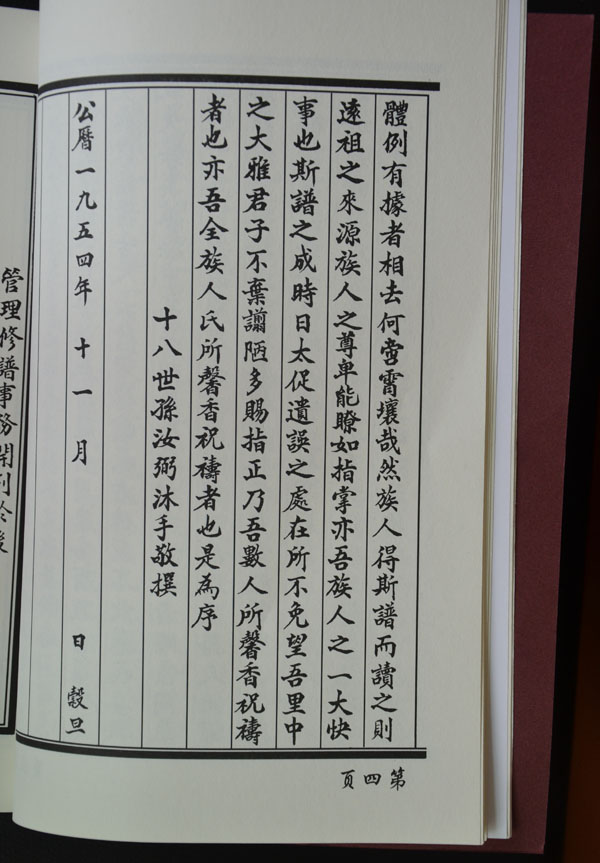 體例有據者相去何啻霄壤哉然族人得斯譜而讀之則
遠祖之來源族人之尊卑能瞭如指掌亦吾族人之一大快
事也斯譜之成時日太促遺誤之處在所不免望吾里中
之大雅君子不棄謭陋多賜指正乃吾數人所馨香祝禱
者也亦吾全族人氏所馨香祝禱者也是為序
十八世孫汝弼沐手敬撰
公曆一九五四年 十一月 日 穀旦
第四頁
管理修譜事務開列於後